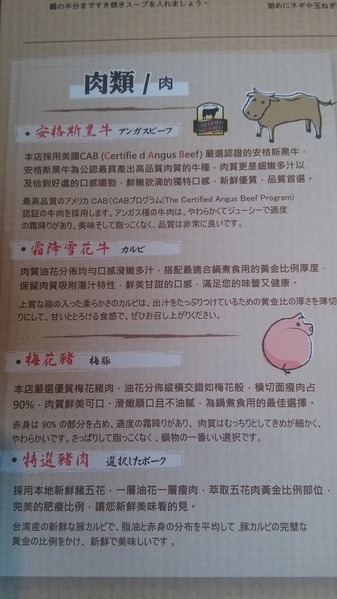 鍋の半分まですき焼きスープを入れましょう・
始めにネギや玉ねぎ
肉類 / 肉
CERTIFIED
• 安格斯黑牛 アンガスビーフ
本店採用美國CAB (Certifie d Angus Beef) 嚴選認證的安格斯黑牛，
安格斯黑牛為公認最具產出高品質肉質的牛種，肉質更是細嫩多汁以
及恰到好處的口感嚼勁，鮮嫩欲滴的獨特口感，新鮮優質，品質首選。
最高品質のアメリカ CAB (CABプログラム(The Certified Angus Beef Program)
認証の牛肉を採用します。アンガス種の牛肉は、やわらかくてジューシで適度
の霜降りがあり、美味そして脂っこなく、品質は非常に良いです。
• 霜降雪花牛 カルビ
肉質油花分佈均勻口感滑嫩多汁，搭配最適合鍋煮食用的黃金比例厚度，
保留肉質吸附湯汁特性，鮮美甘甜的口感，滿足您的味蕾又健康。
上質な脂の入った柔らかさのカルビは、出汁をたっぷりつけているための黄金比の厚さを薄切
りにして、甘いととろける食感で、ぜひお召し上がりください。
• 梅花豬 梅豚
本店嚴選優質梅花豬肉，油花分佈縱橫交錯如梅花般，橫切面瘦肉占
90%，肉質鮮美可口、滑嫩順口且不油膩，為鍋煮食用的最佳選擇。
赤身は 90% の部分を占め、適度の霜降りがあり、肉質はむっちりとしてきめが細かく、
やわらかいです。さっぱりして脂っこくなく、鍋物の一番いい選択です。
• 特選豬肉 選択したポーク
採用本地新鮮豬五花，一層油花一層瘦肉，萃取五花肉黃金比例部位，
完美的肥瘦比例，讓您新鮮美味看的見。
台湾産の新鮮な豚カルビで、脂油と赤身の分布を平均して ,豚カルビの完璧な
黄金の比例をかけ、新鮮で美味しいです 。